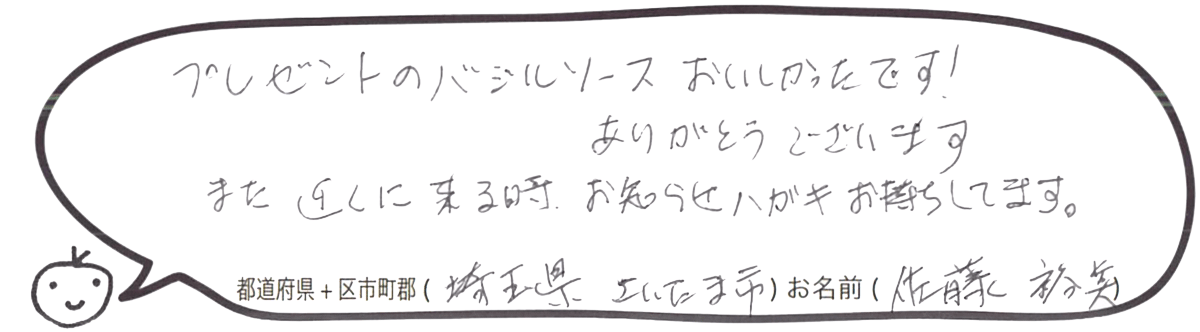 プレゼントのバジルソース おいしかったです!
ありがとうございます
また近くに来る時、お知らせハガキお待ちしてます。
都道府県+区市町郡(埼玉県 さいたま市)お名前(佐藤 裕美